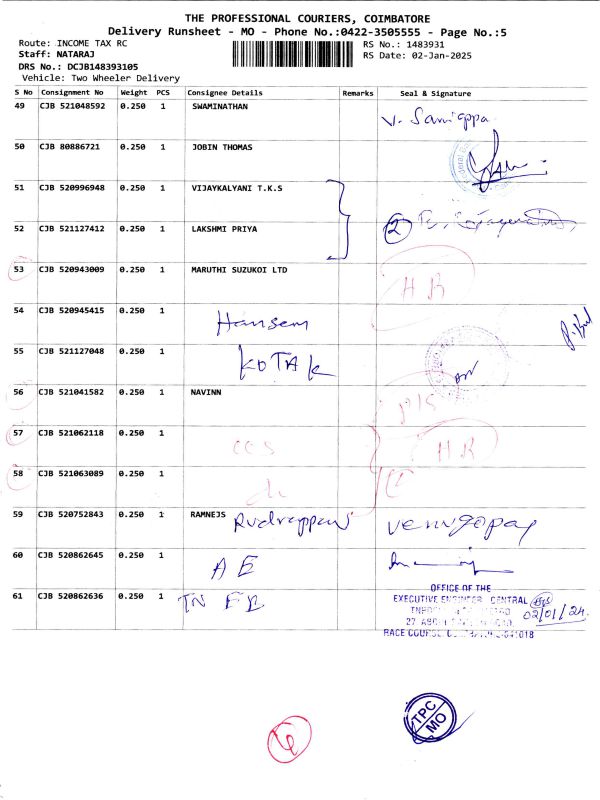 THE PROFESSIONAL COURIERS, COIMBATORE
Delivery Runsheet - MO - Phone No.:0422-3505555 - Page No.:5
Route: INCOME TAX RC RS No.: 1483931
Staff: NATARAJ RS Date: 02-Jan-2025
DRS No.: DCJB148393105
Vehicle: Two Wheeler Delivery
S No Consignment No Weight PCS Consignee Details Remarks Seal & Signature
49 CJB 521048592 0.250 1 SWAMINATHAN
50 CJB 80886721 0.250 1 JOBIN THOMAS
51 CJB 520996948 0.250 1 VIJAYKALYANI T.K.S
52 CJB 521127412 0.250 1 LAKSHMI PRIYA 2
53 CJB 520943009 0.250 1 MARUTHI SUZUKOI LTD HR
54 CJB 520945415 0.250 1 Hansem
55 CJB 521127048 0.250 1 KOTAK
56 CJB 521041582 0.250 1 NAVINN
57 CJB 521062118 0.250 1 CCS HR
58 CJB 521063089 0.250 1
59 CJB 520752843 0.250 1 RAMNEJS Rudrappan venugopay
60 CJB 520862645 0.250 1 AE
61 CJB 520862636 0.250 1 TN EB
OFFICE OF THE
EXECUTIVE ENGINEER CENTRAL
02/01/24.
RACE COURSE
TPC
MO